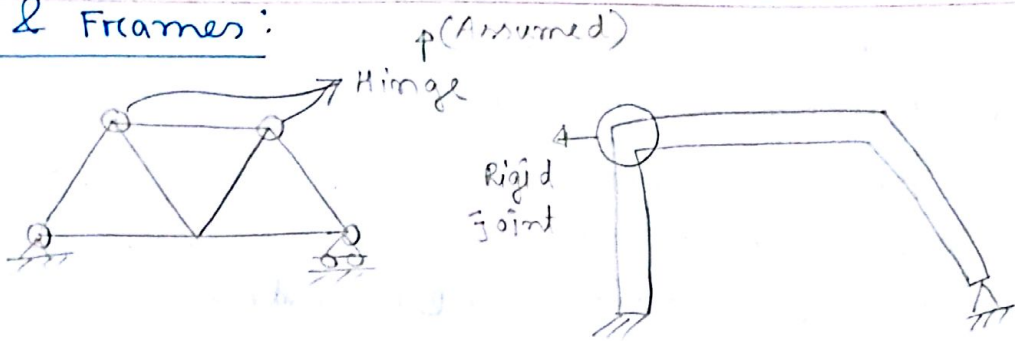 & Frames:
(Assumed)
Hinge
Rigid
Joint